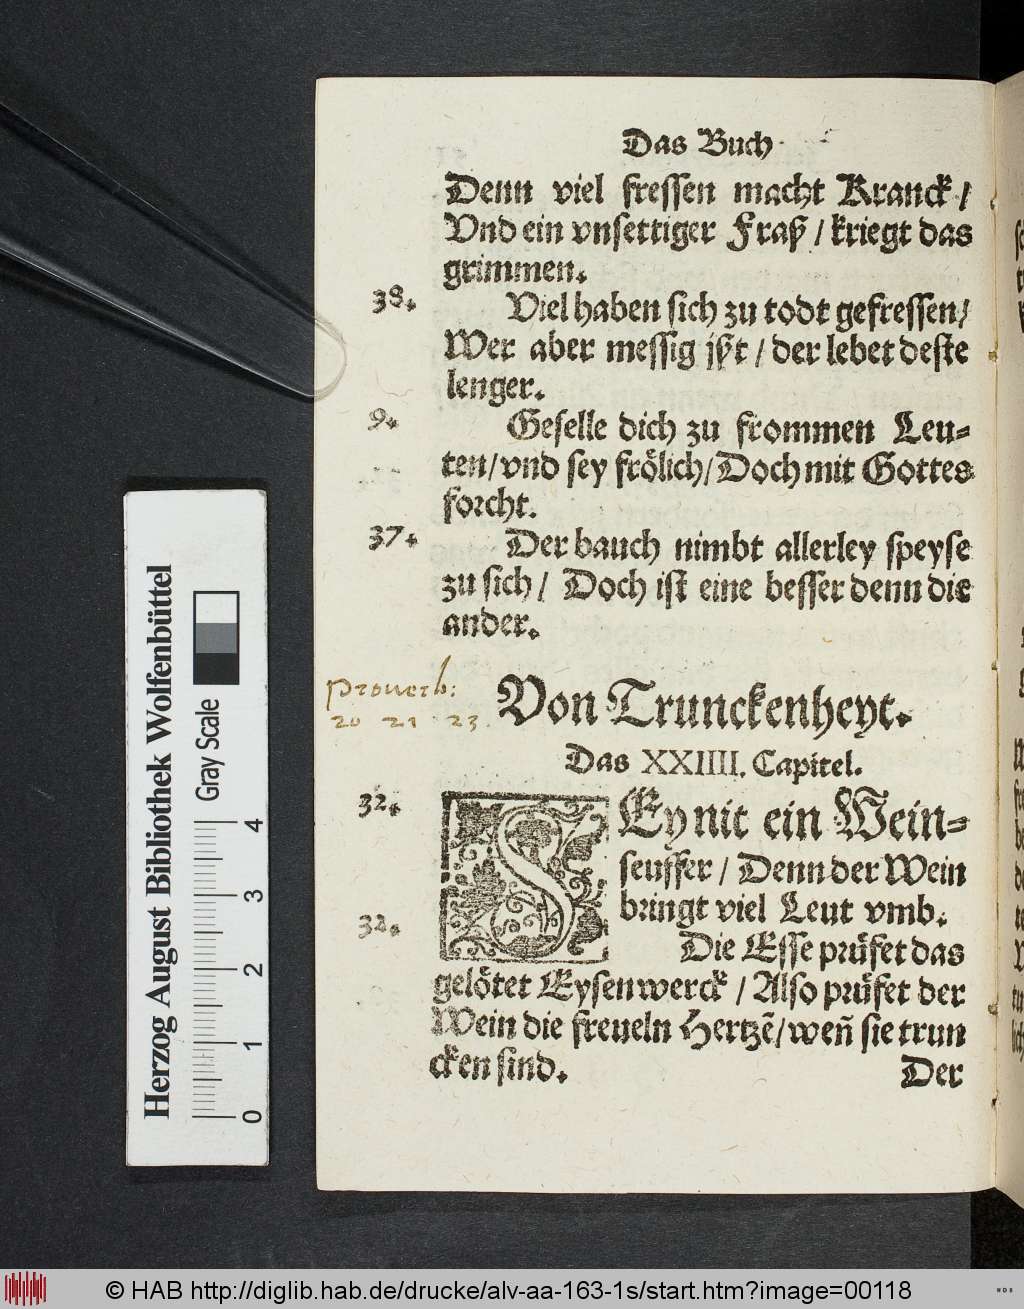 Das Buch
Denn viel fressen macht Kranck /
Vnd ein vnsettiger Fraß / kriegt das
grimmen.
38.
Viel haben sich zu todt gefressen/
Wer aber messig jßt / der lebet deste
lenger.
9.
Geselle dich zu frommen Leu-
ten/ vnd sey frölich/ Doch mit Gottes
forcht.
37.
Der bauch nimbt allerley speyse
zu sich / Doch ist eine besser denn die
ander.
Prouerb:
20 21 23
Von Trunckenheyt.
Das XXIIII. Capitel.
32.
SEy nit ein Wein-
seuffer / Denn der Wein
bringt viel Leut vmb.
32.
Die Esse prüfet das
gelötet Eysenwerck / Also prüfet der
Wein die freueln Hertzẽ/ weñ sie trun
cken sind.
Der
Herzog August Bibliothek Wolfenbüttel
Gray Scale
0 1 2 3 4
© HAB http://diglib.hab.de/drucke/alv-aa-163-1s/start.htm?image=00118